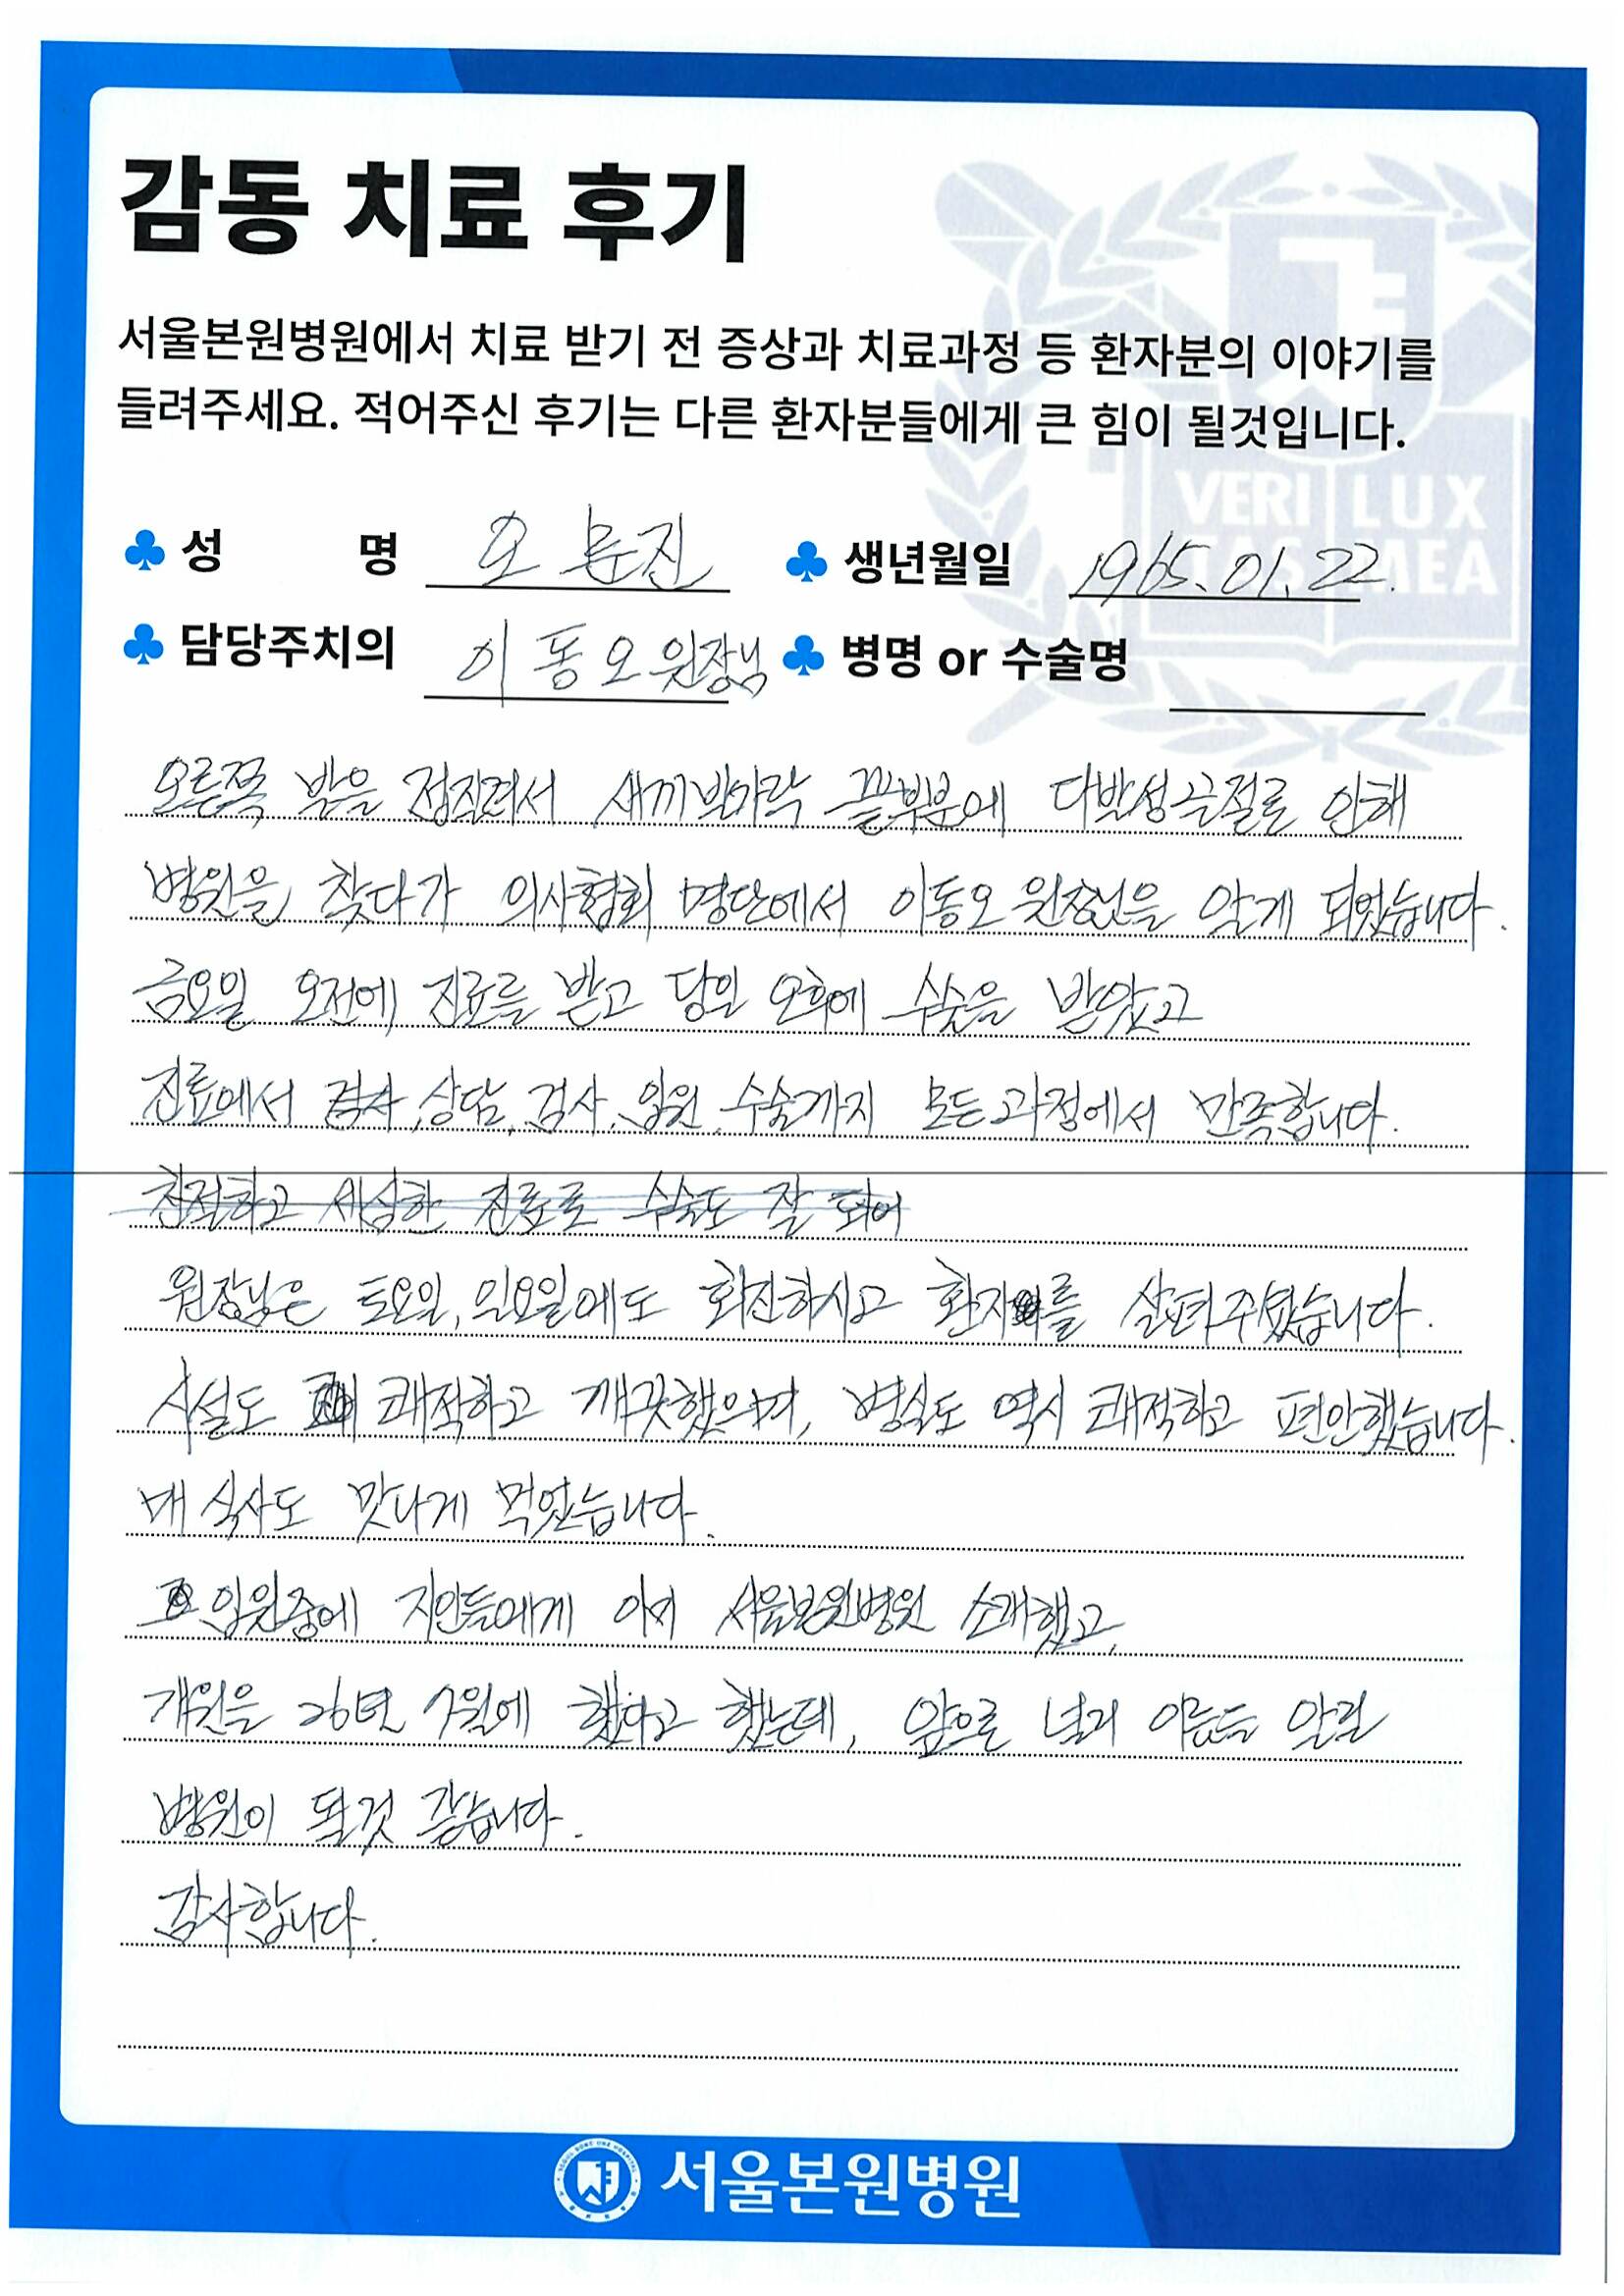 감동 치료 후기
서울본원병원에서 치료 받기 전 증상과 치료과정 등 환자분의 이야기를
들려주세요. 적어주신 후기는 다른 환자분들에게 큰 힘이 될것입니다.
VERI LUX
TAS MEA
♣ 성 명 오 문진 ♣ 생년월일 1965.01.22.
♣ 담당주치의 이동오 원장님 ♣ 병명 or 수술명
오른쪽 발을 접질려서 새끼발가락 끝부분에 다발성골절로 인해
병원을 찾다가 의사협회 명단에서 이동오 원장님을 알게 되었습니다.
금요일 오전에 진료를 받고 당일 오후에 수술을 받았고
진료에서 상담, 검사, 입원, 수술까지 모든과정에서 만족합니다.
친절하고 세심한 진료로 수술도 잘 되어
원장님은 토요일, 일요일에도 회진하시고 환자를 살펴주셨습니다.
시설도 쾌적하고 깨끗했으며, 병실도 역시 쾌적하고 편안했습니다.
매 식사도 맛나게 먹었습니다.
입원중에 지인들에게 서울본원병원 소개했고,
개원을 26년 1월에 했다고 했는데, 앞으로 널리 이름을 알릴
병원이 될것 같습니다.
감사합니다.
서울본원병원